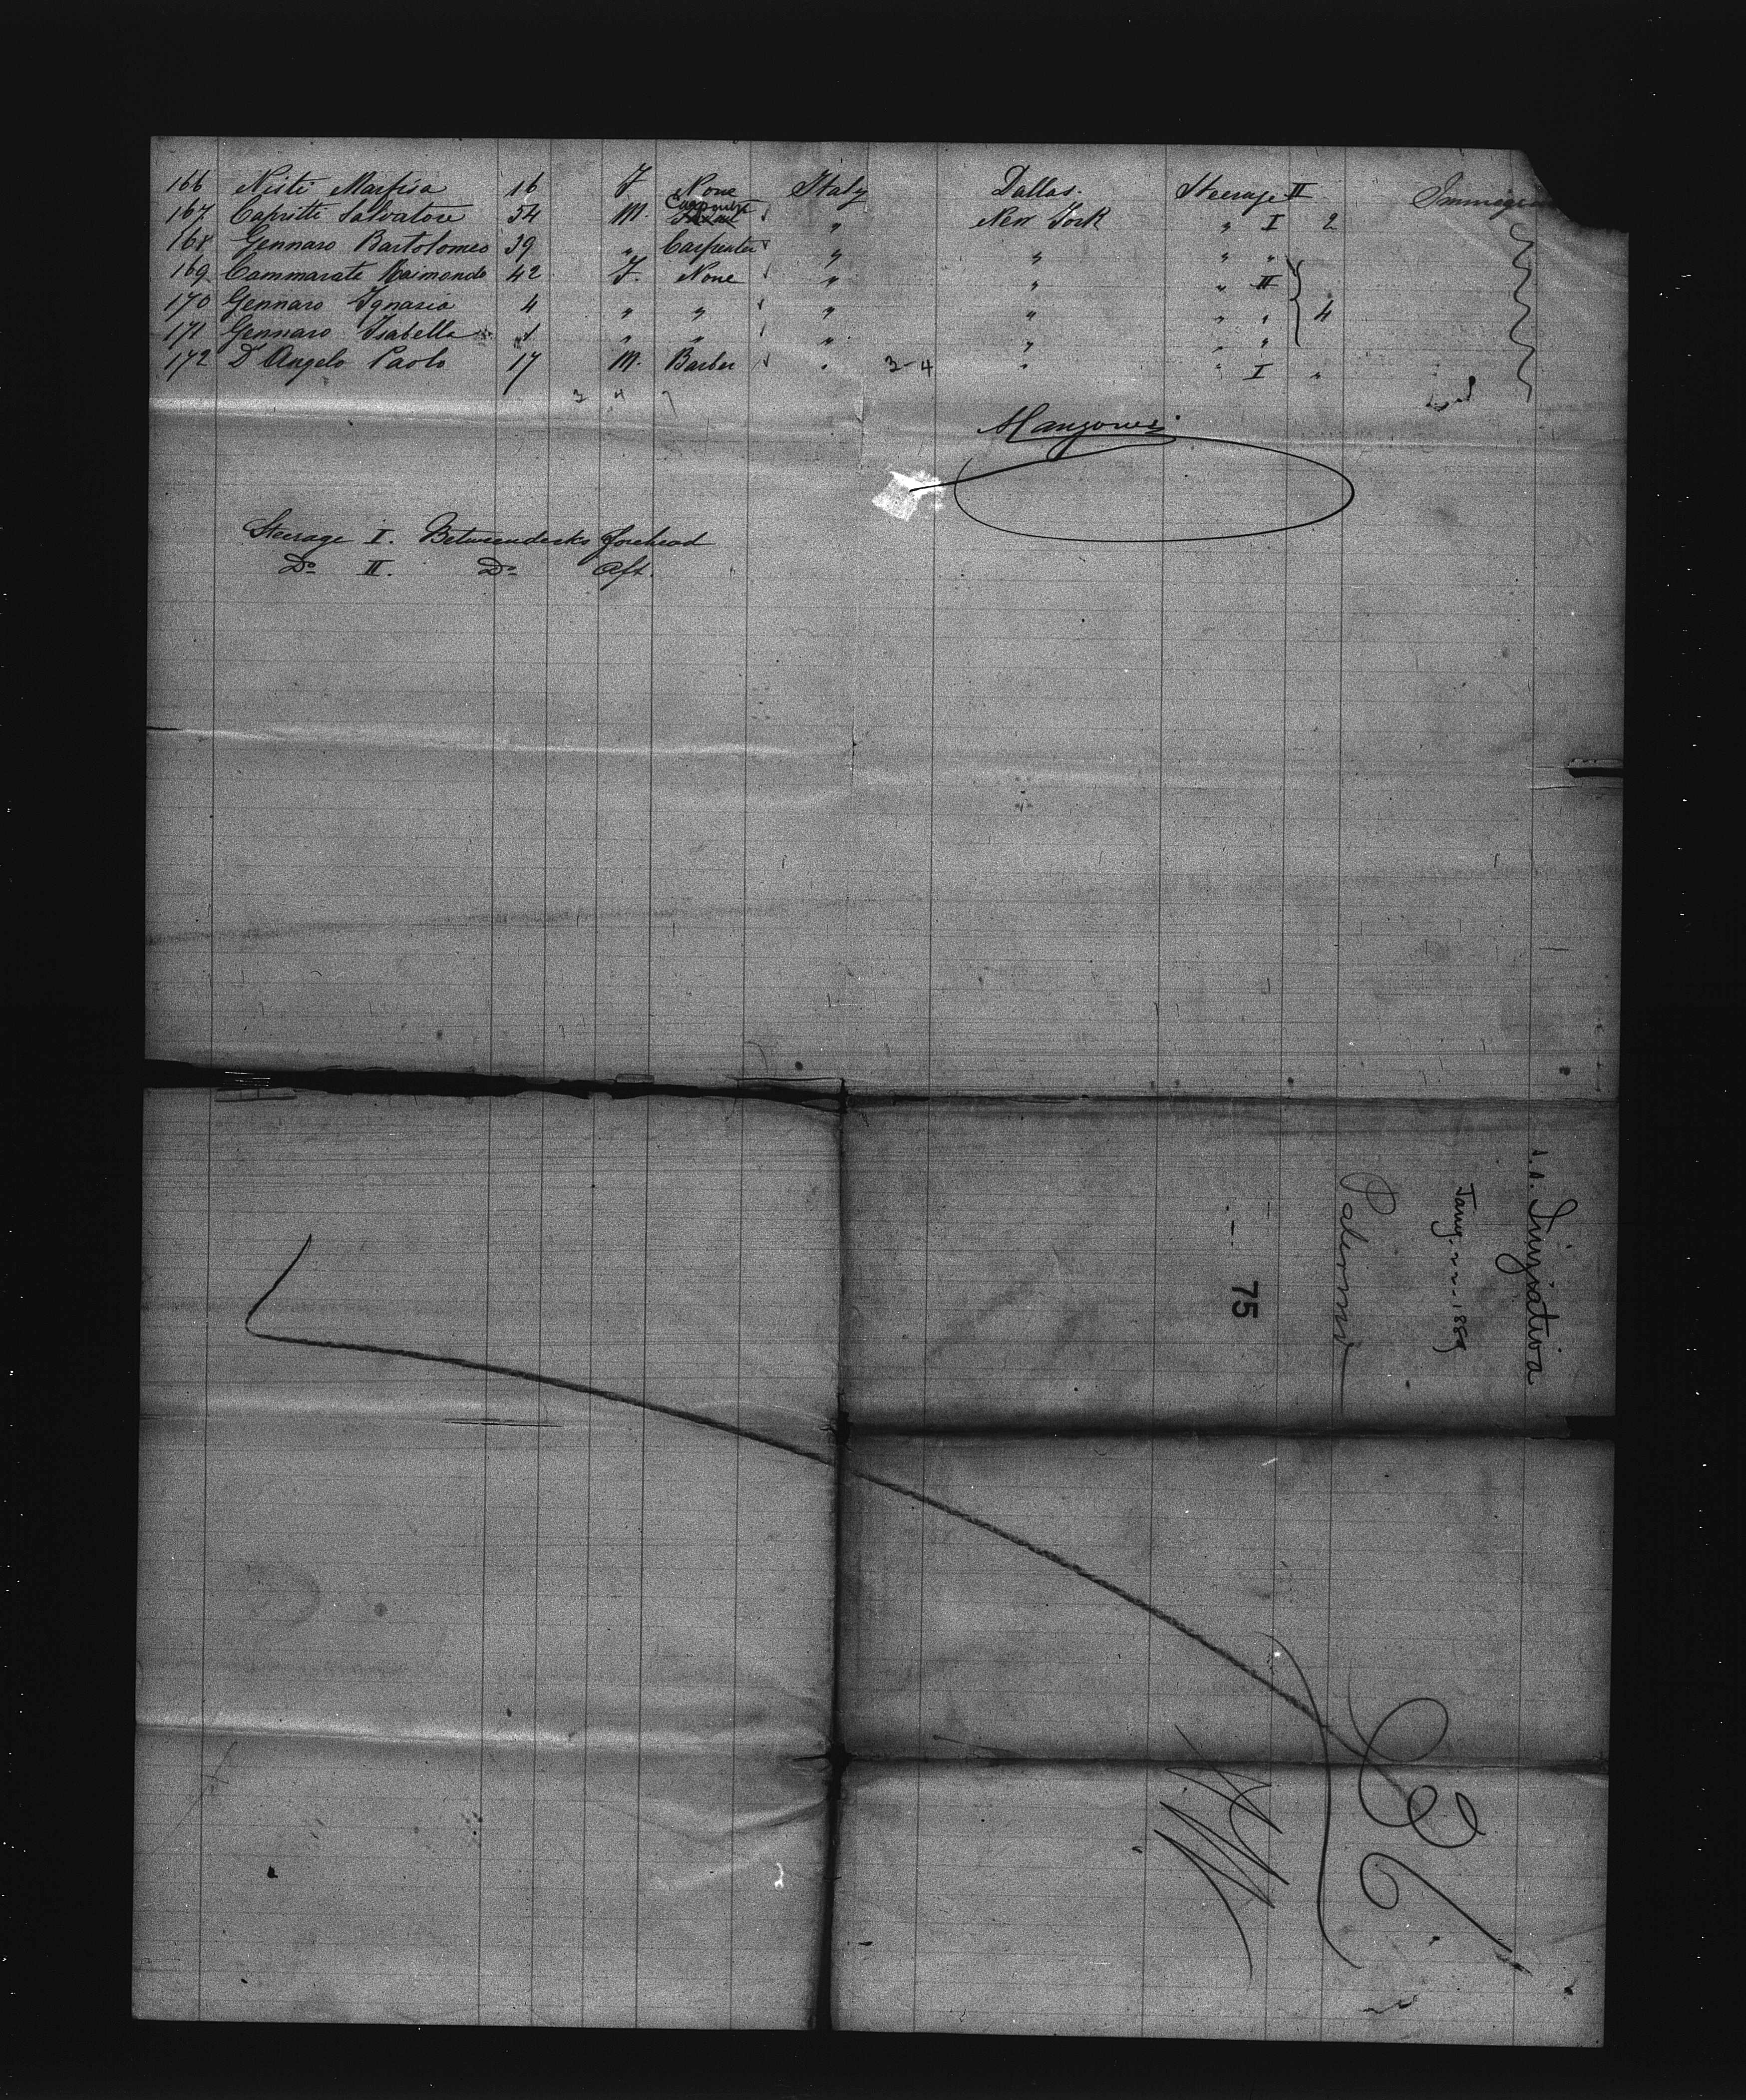 166 Nisti Marfisa 16 F None Italy Dallas. Steerage II
167 Capritti Salvatore 54 M. " New York " I 2
168 Gennaro Bartolomeo 39 " Carpenter " " " "
169 Cammarata Raimonda 42 F. None " " " II
170 Gennaro Ignazia 4 " " " " " " 4
171 Gennaro Isabella 1 " " " " " "
172 D'Angelo Paolo 17 M. Barber " 3-4 " " I "
3 4 7
Steerage I. Betweendecks forehead
Do II. Do Aft.
s.s. Iniziativa
1889
Palermo
75